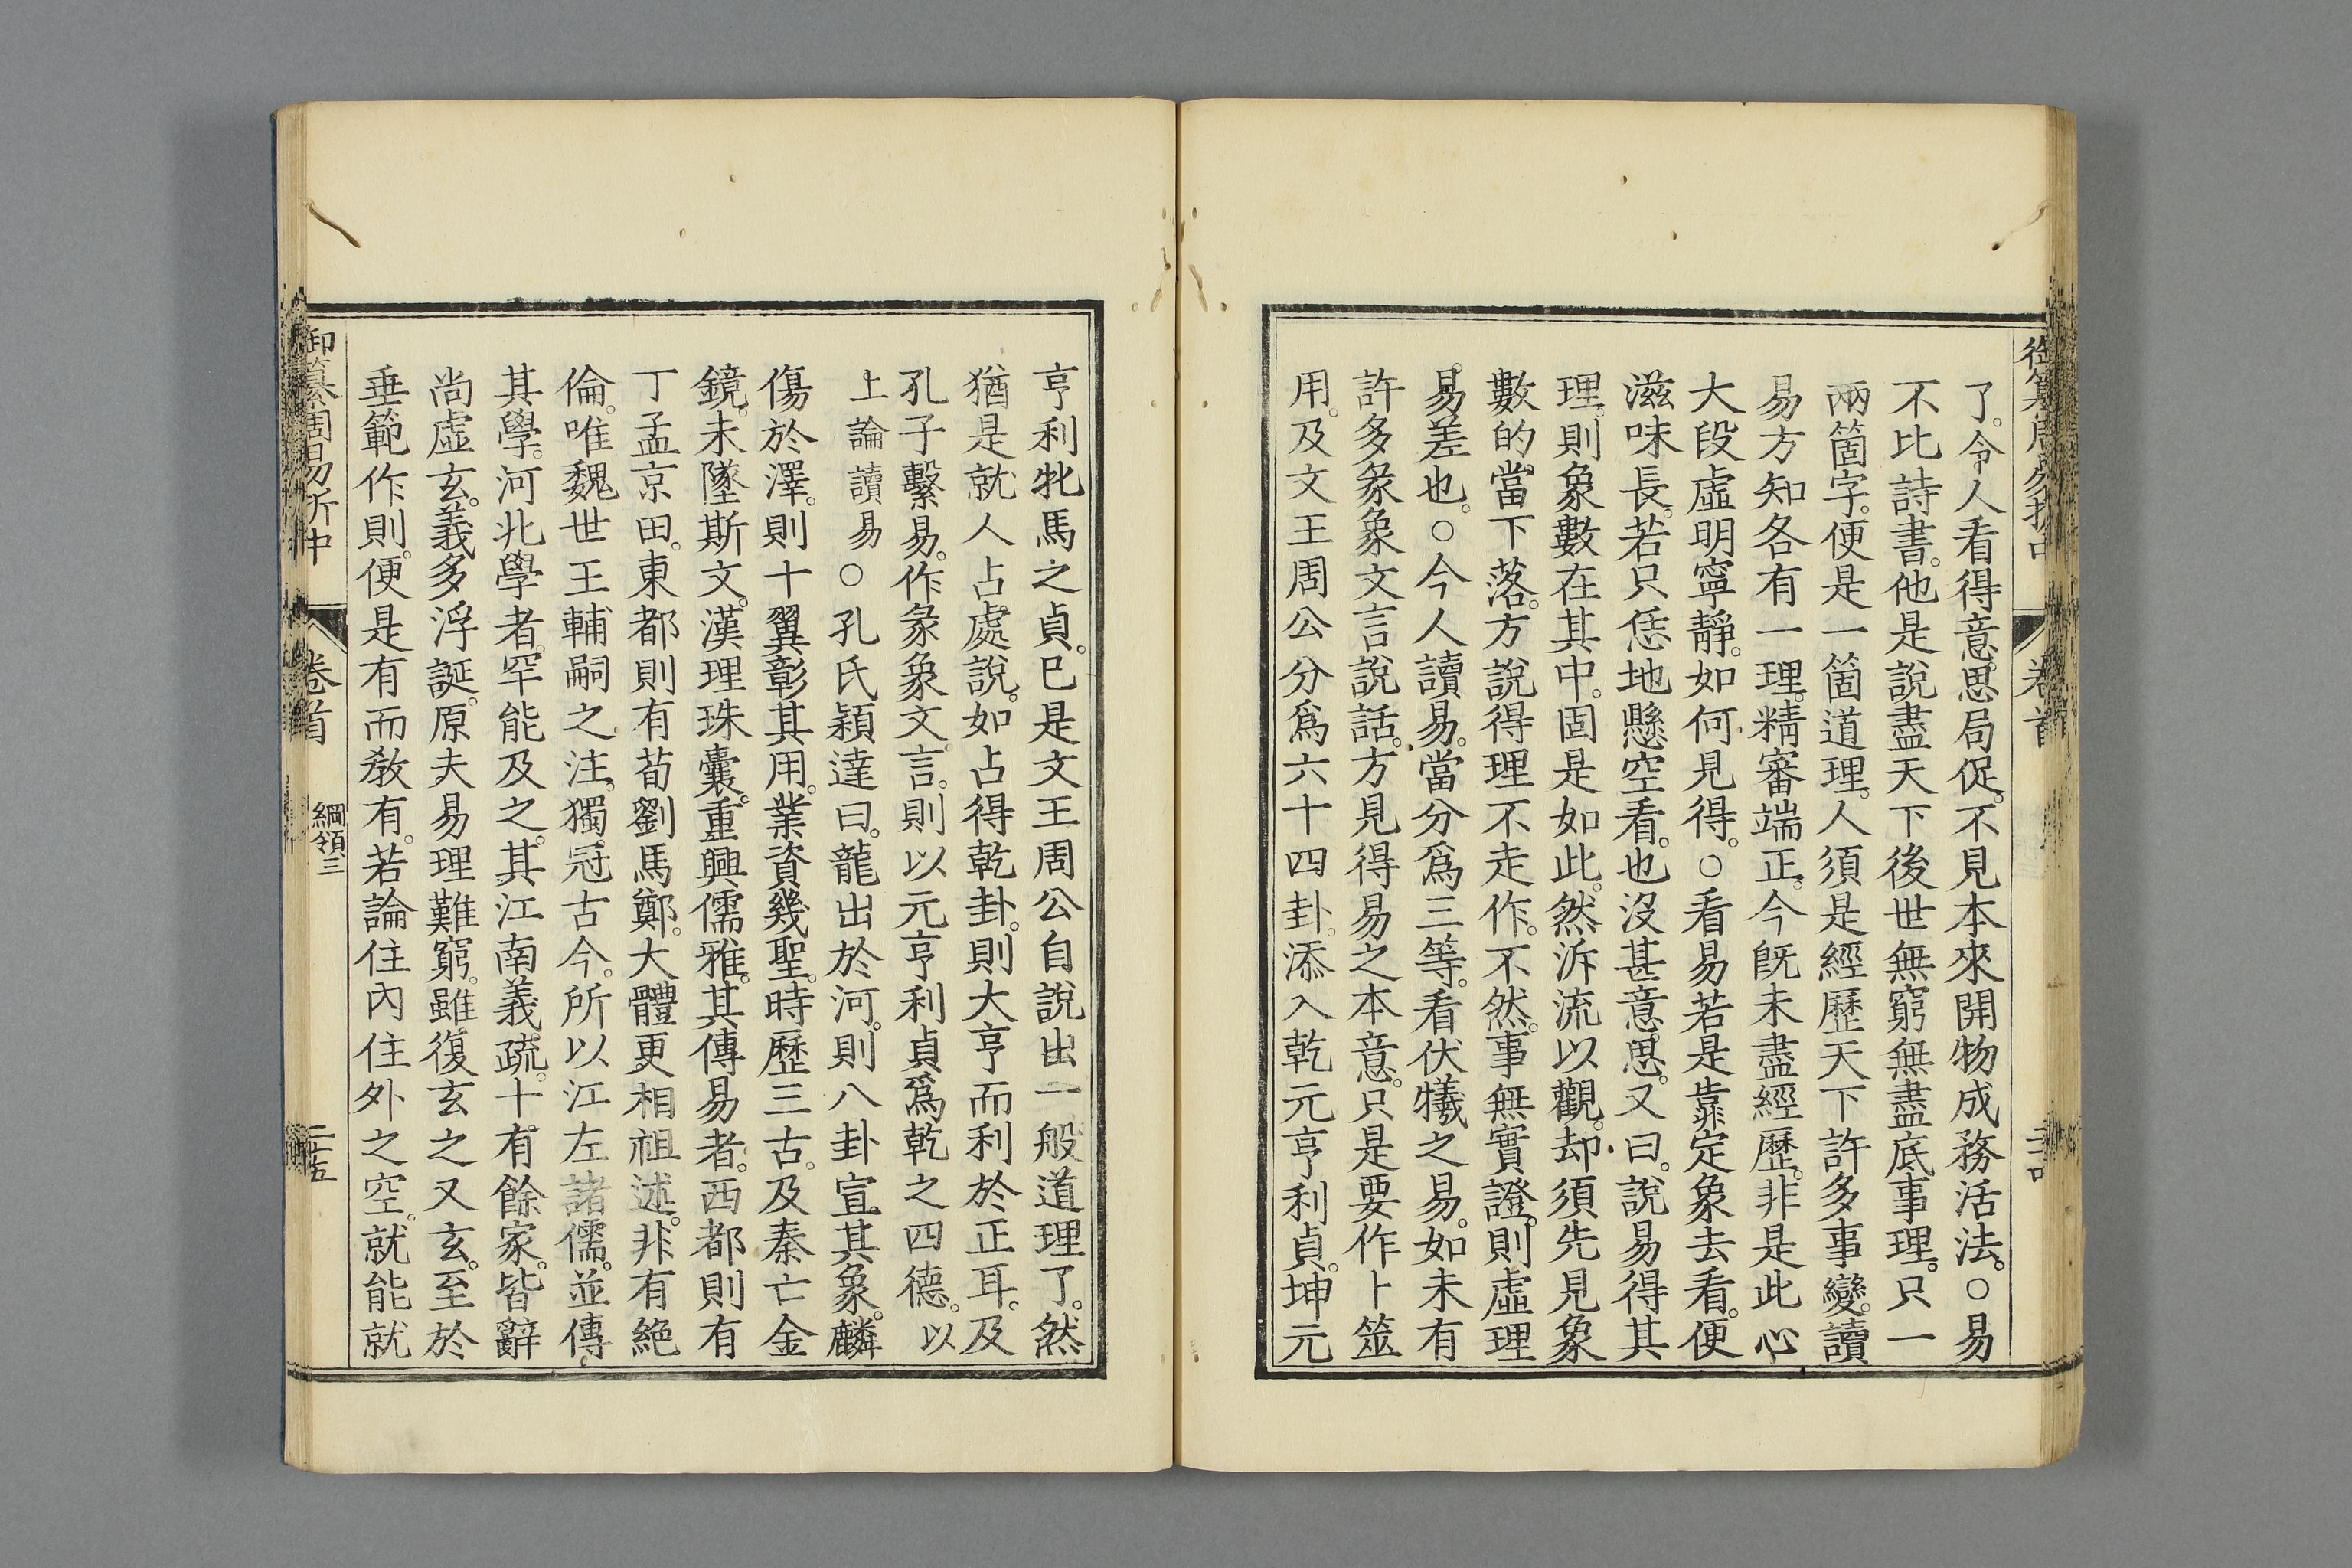 御纂周易折中 卷首
了。令人看得意思局促。不見本來開物成務活法。○易
不比詩書。他是說盡天下後世無窮無盡底事理。只一
兩箇字。便是一箇道理。人須是經歷天下許多事變。讀
易方知各有一理。精審端正。今旣未盡經歷。非是此心
大段虛明寧靜。如何見得。○看易若是靠定象去看。便
滋味長。若只恁地懸空看。也沒甚意思。又曰。說易得其
理。則象數在其中。固是如此。然泝流以觀。却須先見象
數的當下落。方說得理不走作。不然。事無實證。則虛理
易差也。○今人讀易。當分爲三等。看伏犧之易。如未有
許多彖象文言說話。方見得易之本意。只是要作卜筮
用。及文王周公分爲六十四卦。添入乾元亨利貞。坤元
亨利牝馬之貞。已是文王周公自說出一般道理了。然
猶是就人占處說。如占得乾卦。則大亨而利於正耳。及
孔子繫易。作彖象文言。則以元亨利貞爲乾之四德。以
上論讀易○孔氏穎達曰。龍出於河。則八卦宣其象。麟
傷於澤。則十翼彰其用。業資幾聖。時歷三古。及秦亡金
鏡。未墜斯文。漢理珠囊。重興儒雅。其傳易者。西都則有
丁孟京田。東都則有荀劉馬鄭。大體更相祖述。非有絕
倫。唯魏世王輔嗣之注。獨冠古今。所以江左諸儒。並傳
其學。河北學者。罕能及之。其江南義疏。十有餘家。皆辭
尚虛玄。義多浮誕。原夫易理難窮。雖復玄之又玄。至於
垂範作則。便是有而敎有。若論住內住外之空。就能就
御纂周易折中 卷首 綱領三 二十五